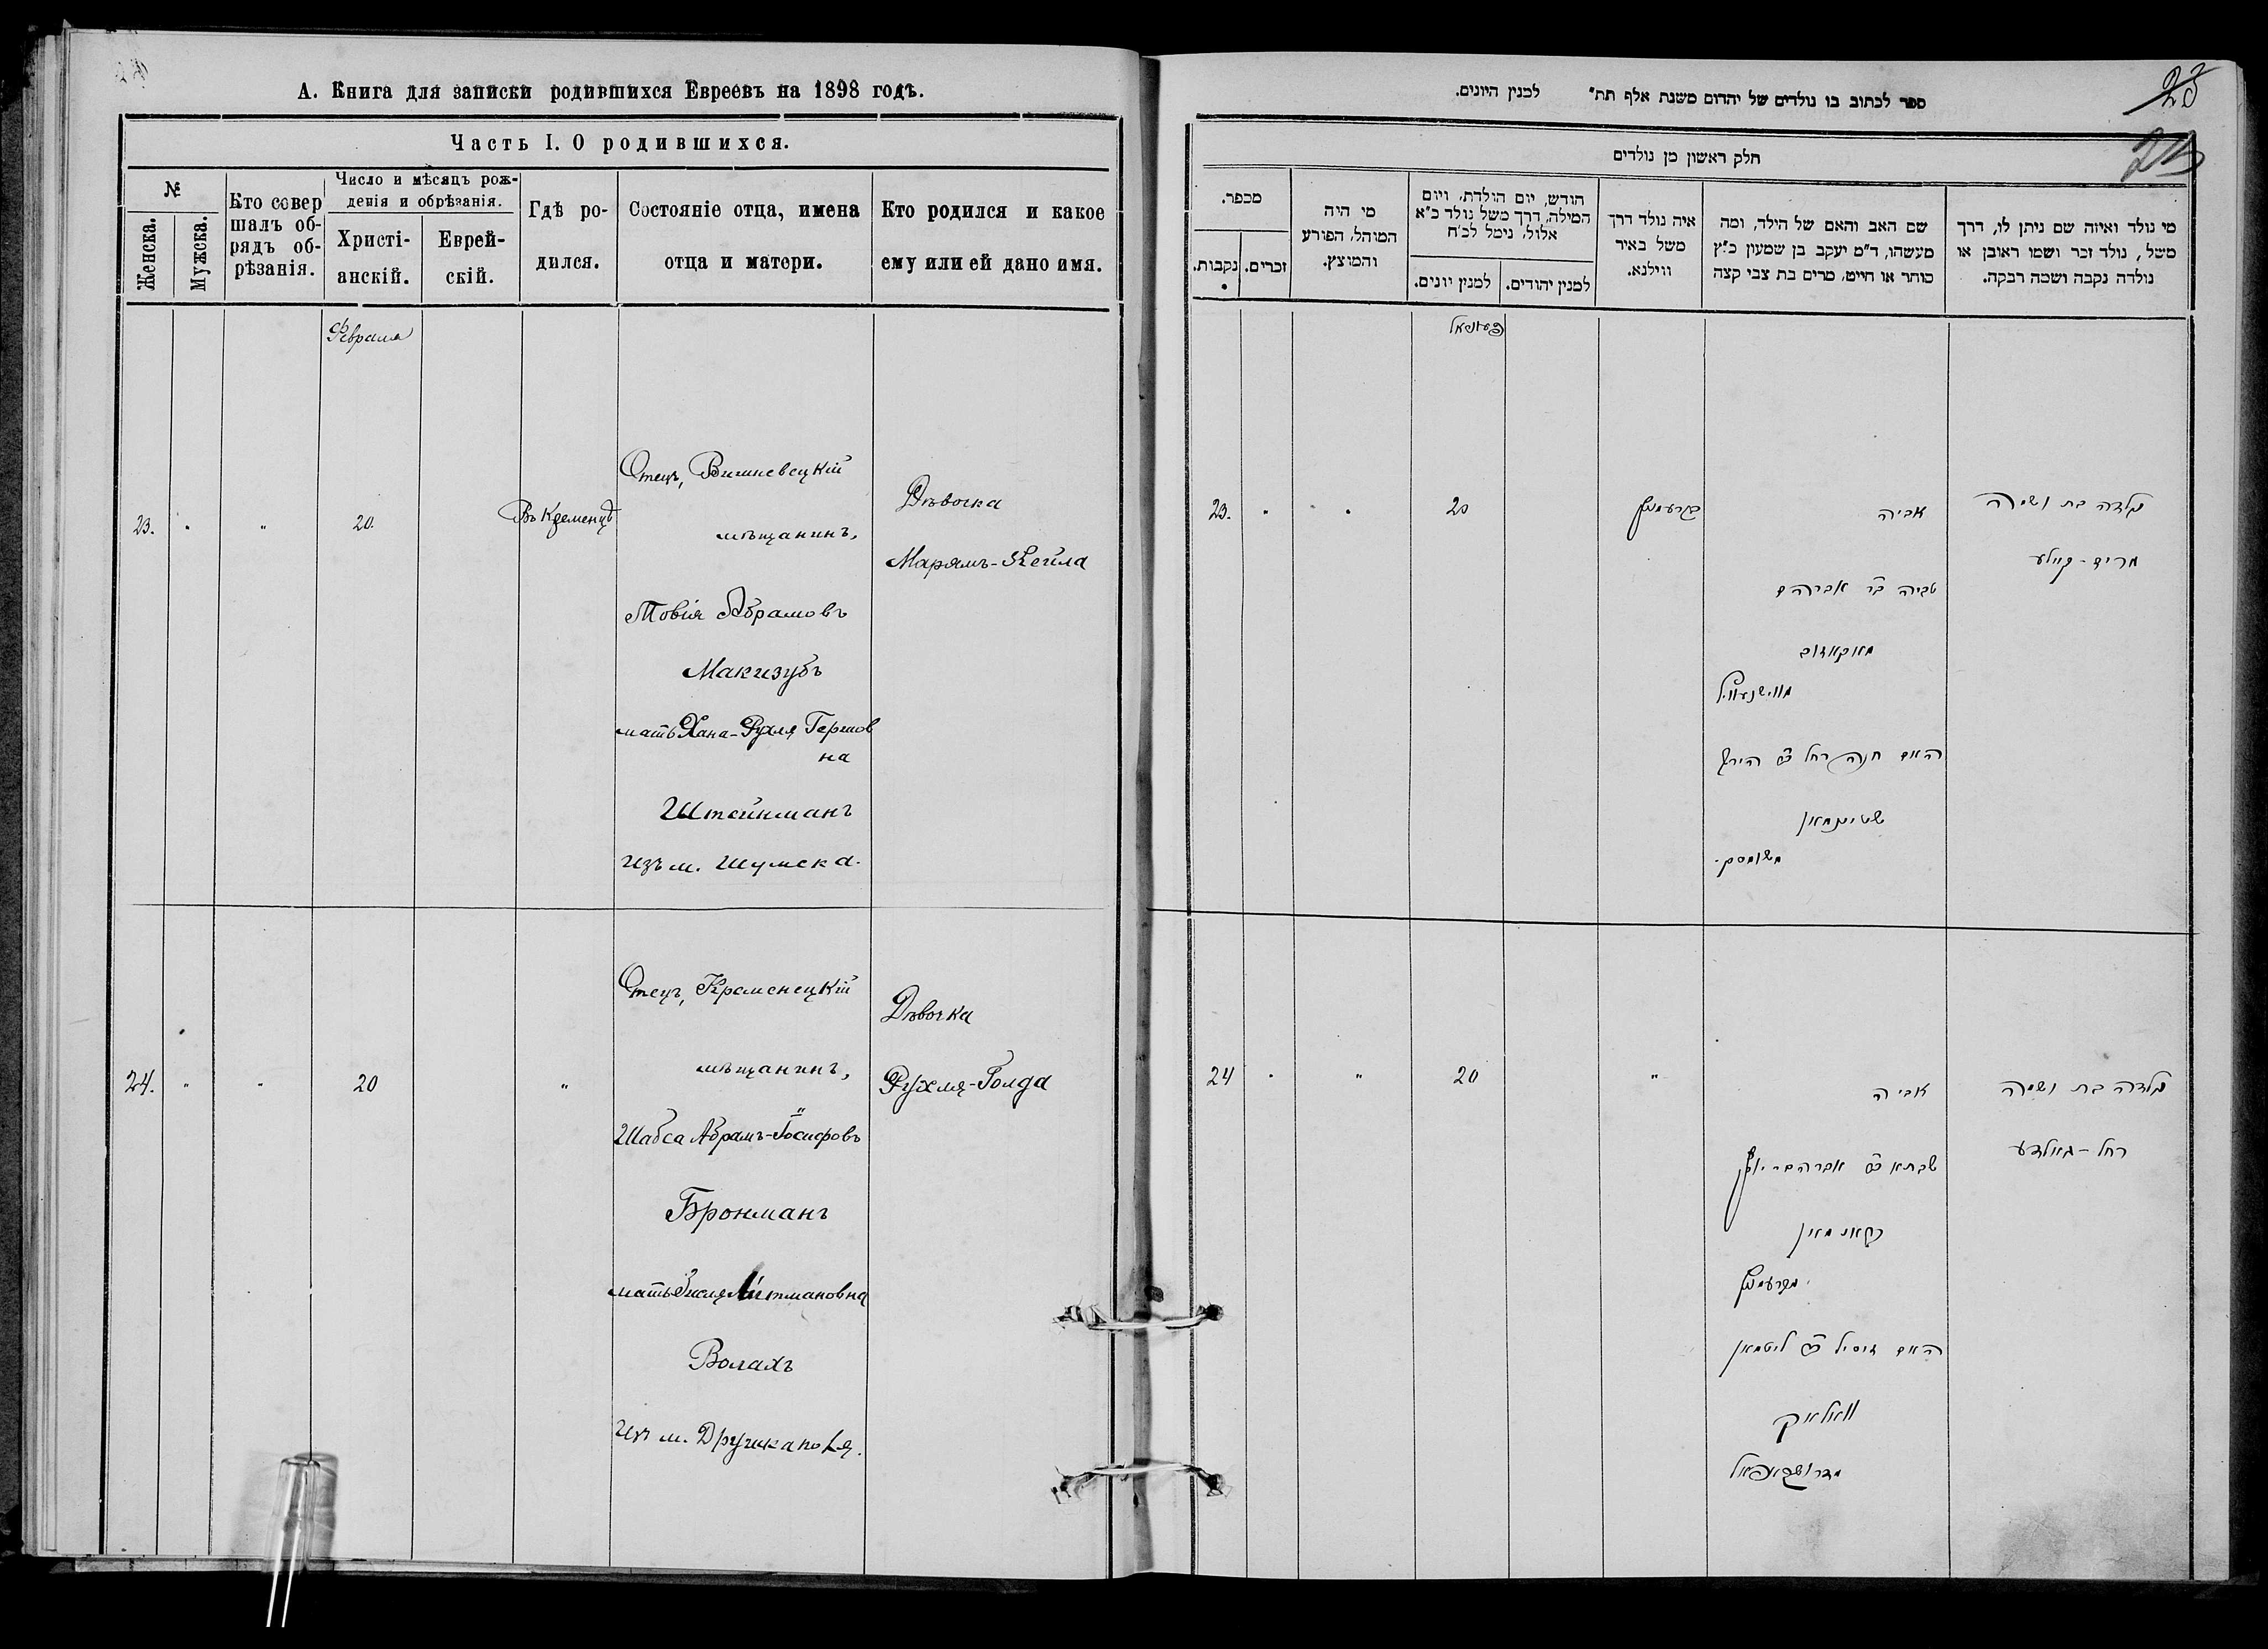 А. Книга для записки родившихся Евреевъ на 1898 годъ.
Часть I. О родившихся.
№
Женска.
Мужска.
Кто совер
шалъ об-
рядъ об-
рѣзанія.
Число и мѣсяцъ рож-
денія и обрѣзанія.
Христі-
анскій.
Еврей-
скій.
Гдѣ ро-
дился.
Состояніе отца, имена
отца и матери.
Кто родился и какое
ему или ей дано имя.
Февраля
23.
"
20.
Въ Кременцѣ
Отецъ, Вишневецкій
мѣщанинъ,
Товія Абрамовъ
Макизубъ
мать Хана-Рухля Гершов
на
Штейнманъ
изъ м. Шумска.
Дѣвочка
Марямъ-Кейла
24.
"
"
20
"
Отецъ, Кременецкій
мѣщанинъ,
Шабса Абрамъ-Іосифовъ
Бронманъ
мать Зисля Литмановна
Волахъ
изъ м.
Дѣвочка
Рухля-Голда
ספר לכתוב בו נולדים של יהדום משנת אלף תת" למנין היונים.
23
חלק ראשון מן נולדים
מספר.
נקבות.
זכרים.
מי היה
המוהל, הפורע
והמוצץ.
חודש, יום הולדת, ויום
המילה, דרך משל נולד כ"א
אלול, נימל לכ"ח
למנין יונים.
למנין יהודים.
איה נולד דרך
משל באיר
ווילנא.
שם האב והאם של הילד, ומה
מעשהו, ד"מ יעקב בן שמעון כ"ץ
סוחר או חייט, מרים בת צבי קצה
מי נולד ואיזה שם ניתן לו, דרך
משל, נולד זכר ושמו ראובן או
נולדה נקבה ושמה רבקה.
23.
20
אביה
טביה ב"ר אברהם
מווישנעוויץ
האם חנה רחל ב"ר הירץ
שטיינמאן
משומסק.
נולדה בת ושמה
מרים-קיילע
24
"
20
"
אביה
שבתא ב"ר אברהם-יוסף
מקרעמניץ
האם זיסיל ב"ר ליטמאן
וואלאך
נולדה בת ושמה
רחל-גאלדע